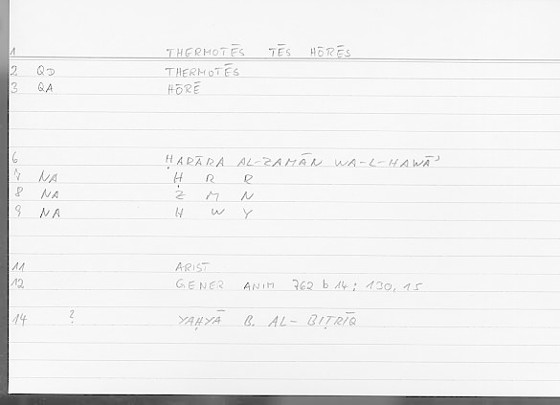 1 THERMOTĒS TĒS HŌRĒS
2 QD THERMOTĒS
3 QA HŌRĒ
6 ḤARĀRA AL-ZAMĀN WA-L-HAWĀʾ
7 NA Ḥ R R
8 NA Z M N
9 NA H W Y
11 ARIST
12 GENER ANIM 762 b 14; 130, 15
14 ? YAḤYĀ B. AL-BIṬRĪQ